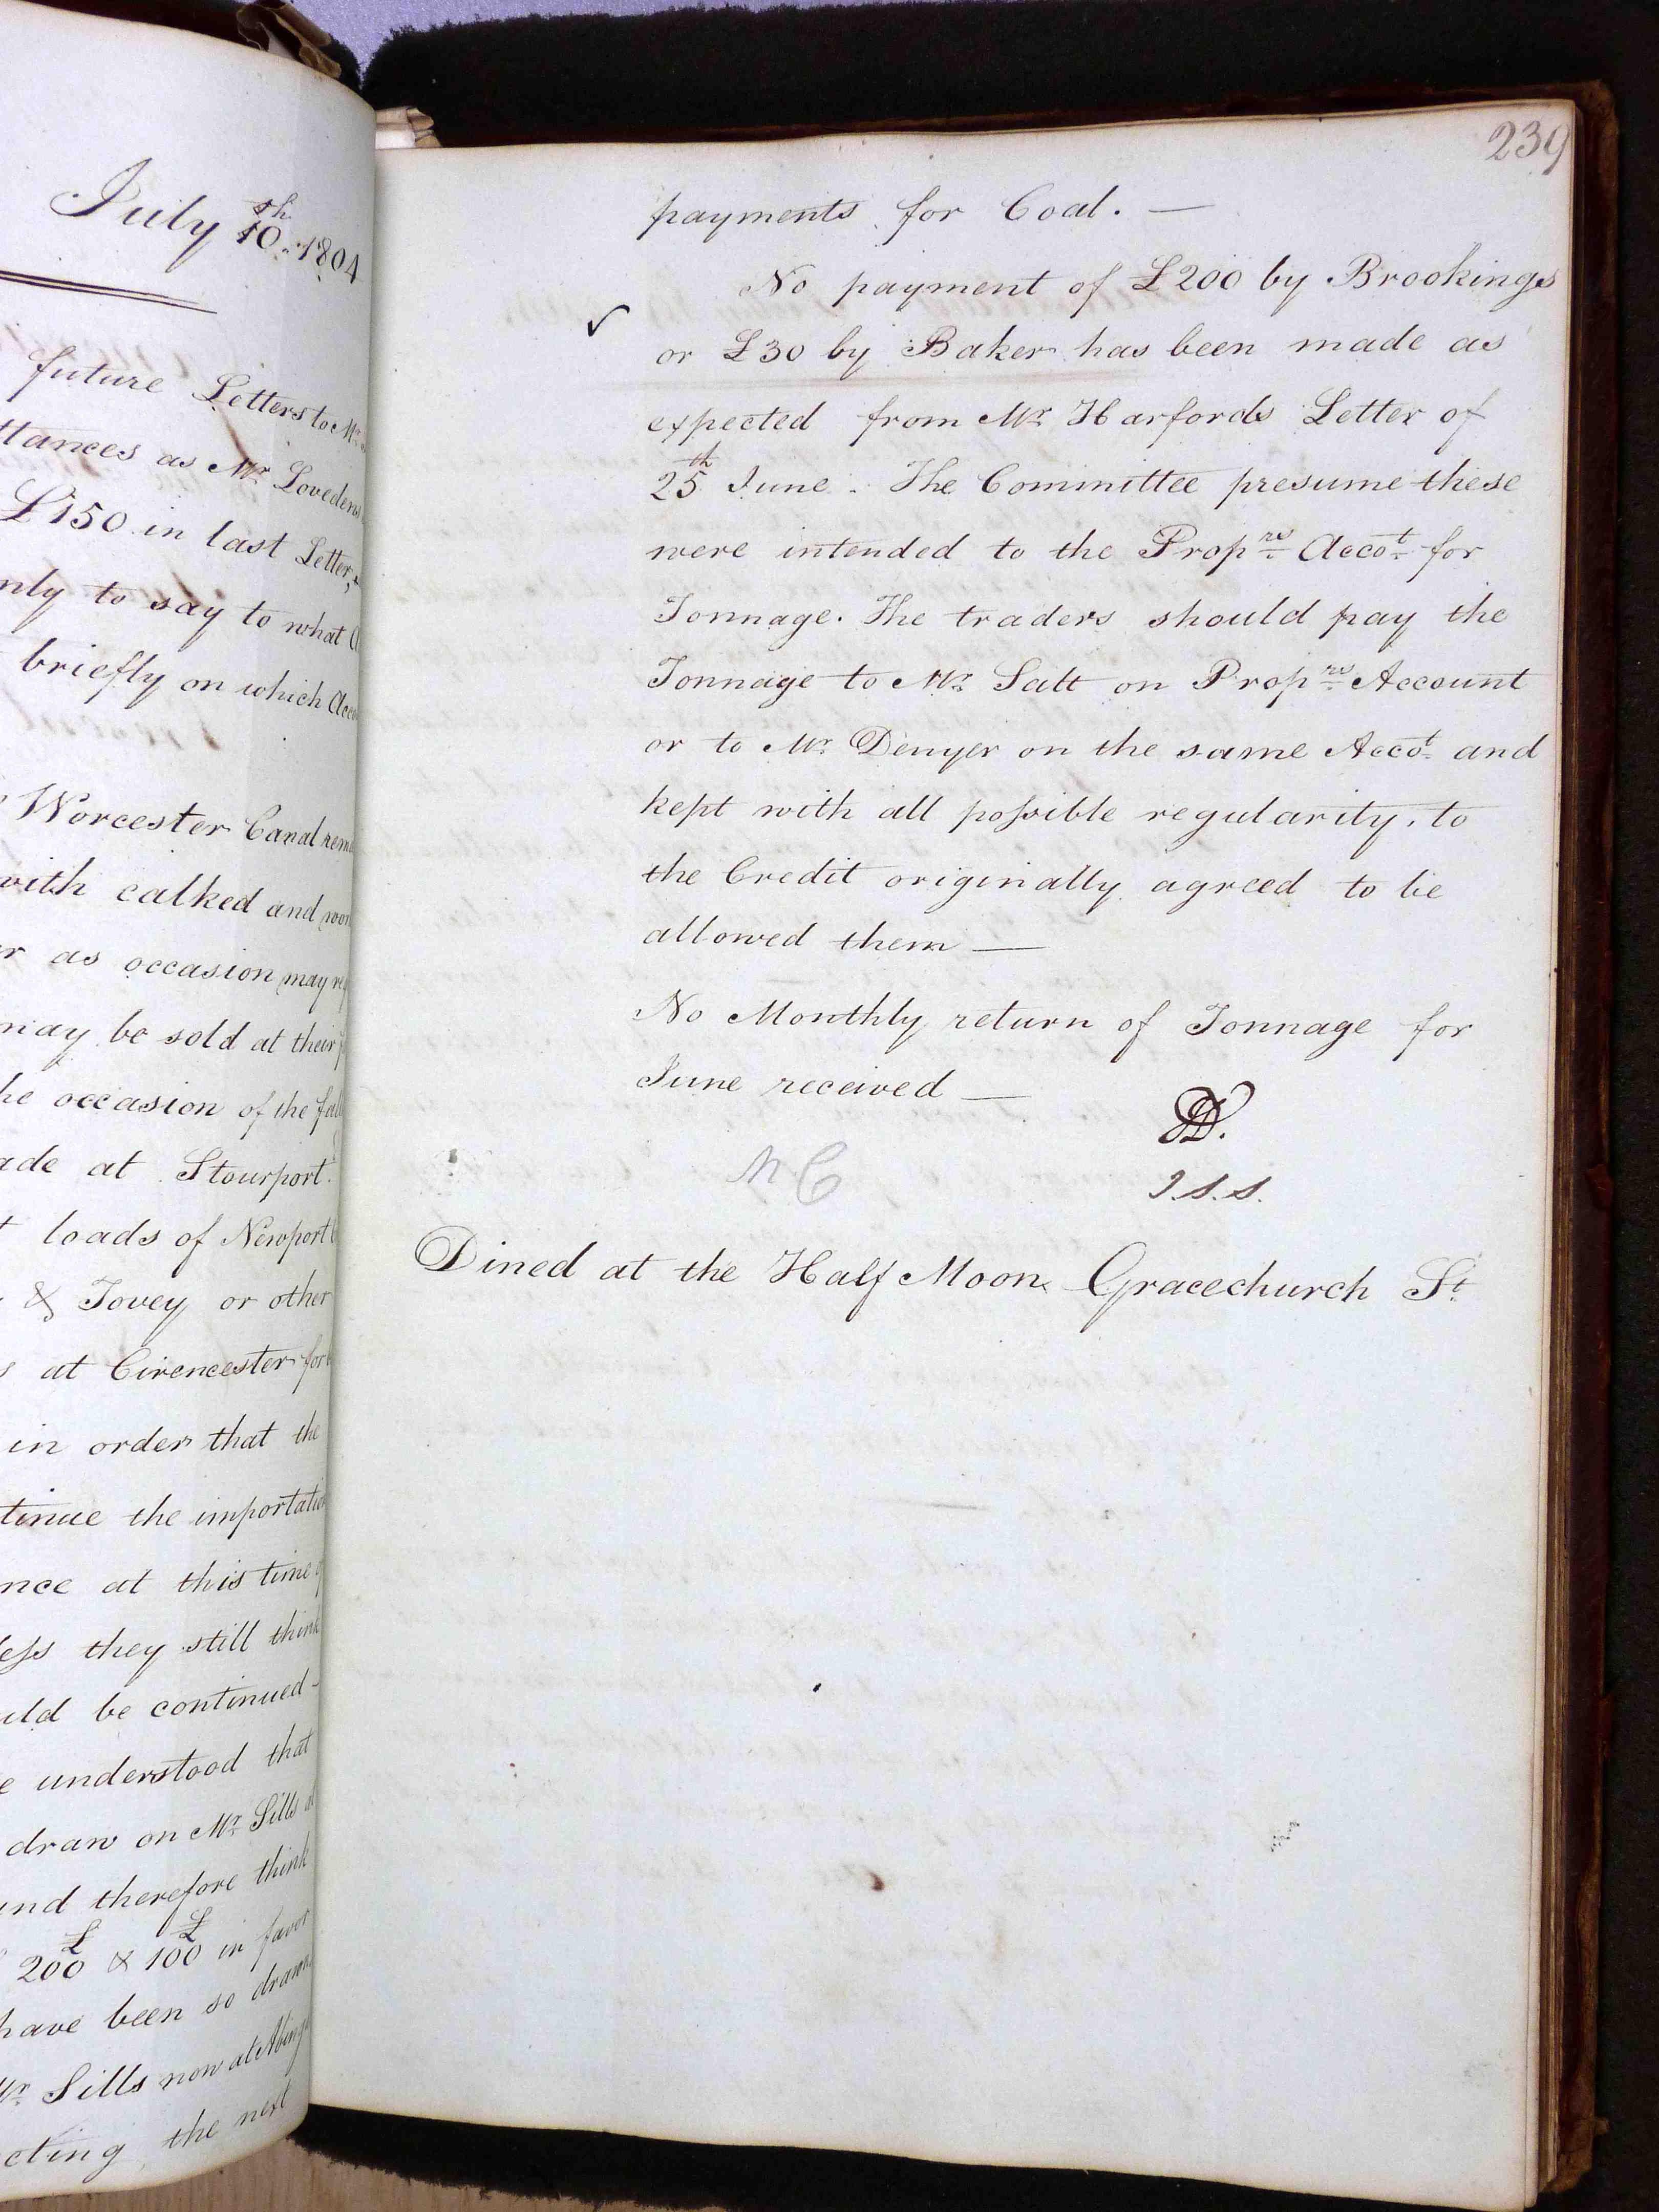 July 10th 1804
future Letters to Mr
ttances as Mr Lovedens
£150 in last Letter,
nly to say to what
briefly on which Acco
Worcester Canal rem
with calked and
r as occasion may re
may be sold at their
he occasion of the fall
ade at Stourport.
t loads of Newport
& Tovey or other
s at Cirencester for
in order that the
tinue the importation
nce at this time
less they still think
uld be continued -
e understood that
draw on Mr Sills
und therefore think
£200 & £100 in favor
have been so drawn
Mr Sills now at Abing
cting the next
239
payments for Coal. —
No payment of £200 by Brookings
✓ or £30 by Baker has been made as
expected from Mr Harfords Letter of
25th June. The Committee presume these
were intended to the Proprs Accot for
Tonnage. The traders should pay the
Tonnage to Mr Salt on Proprs Account
or to Mr Denyer on the same Accot and
kept with all possible regularity, to
the Credit originally agreed to be
allowed them —
No Monthly return of Tonnage for
June received —
J.S.S.
Dined at the Half Moon Gracechurch St